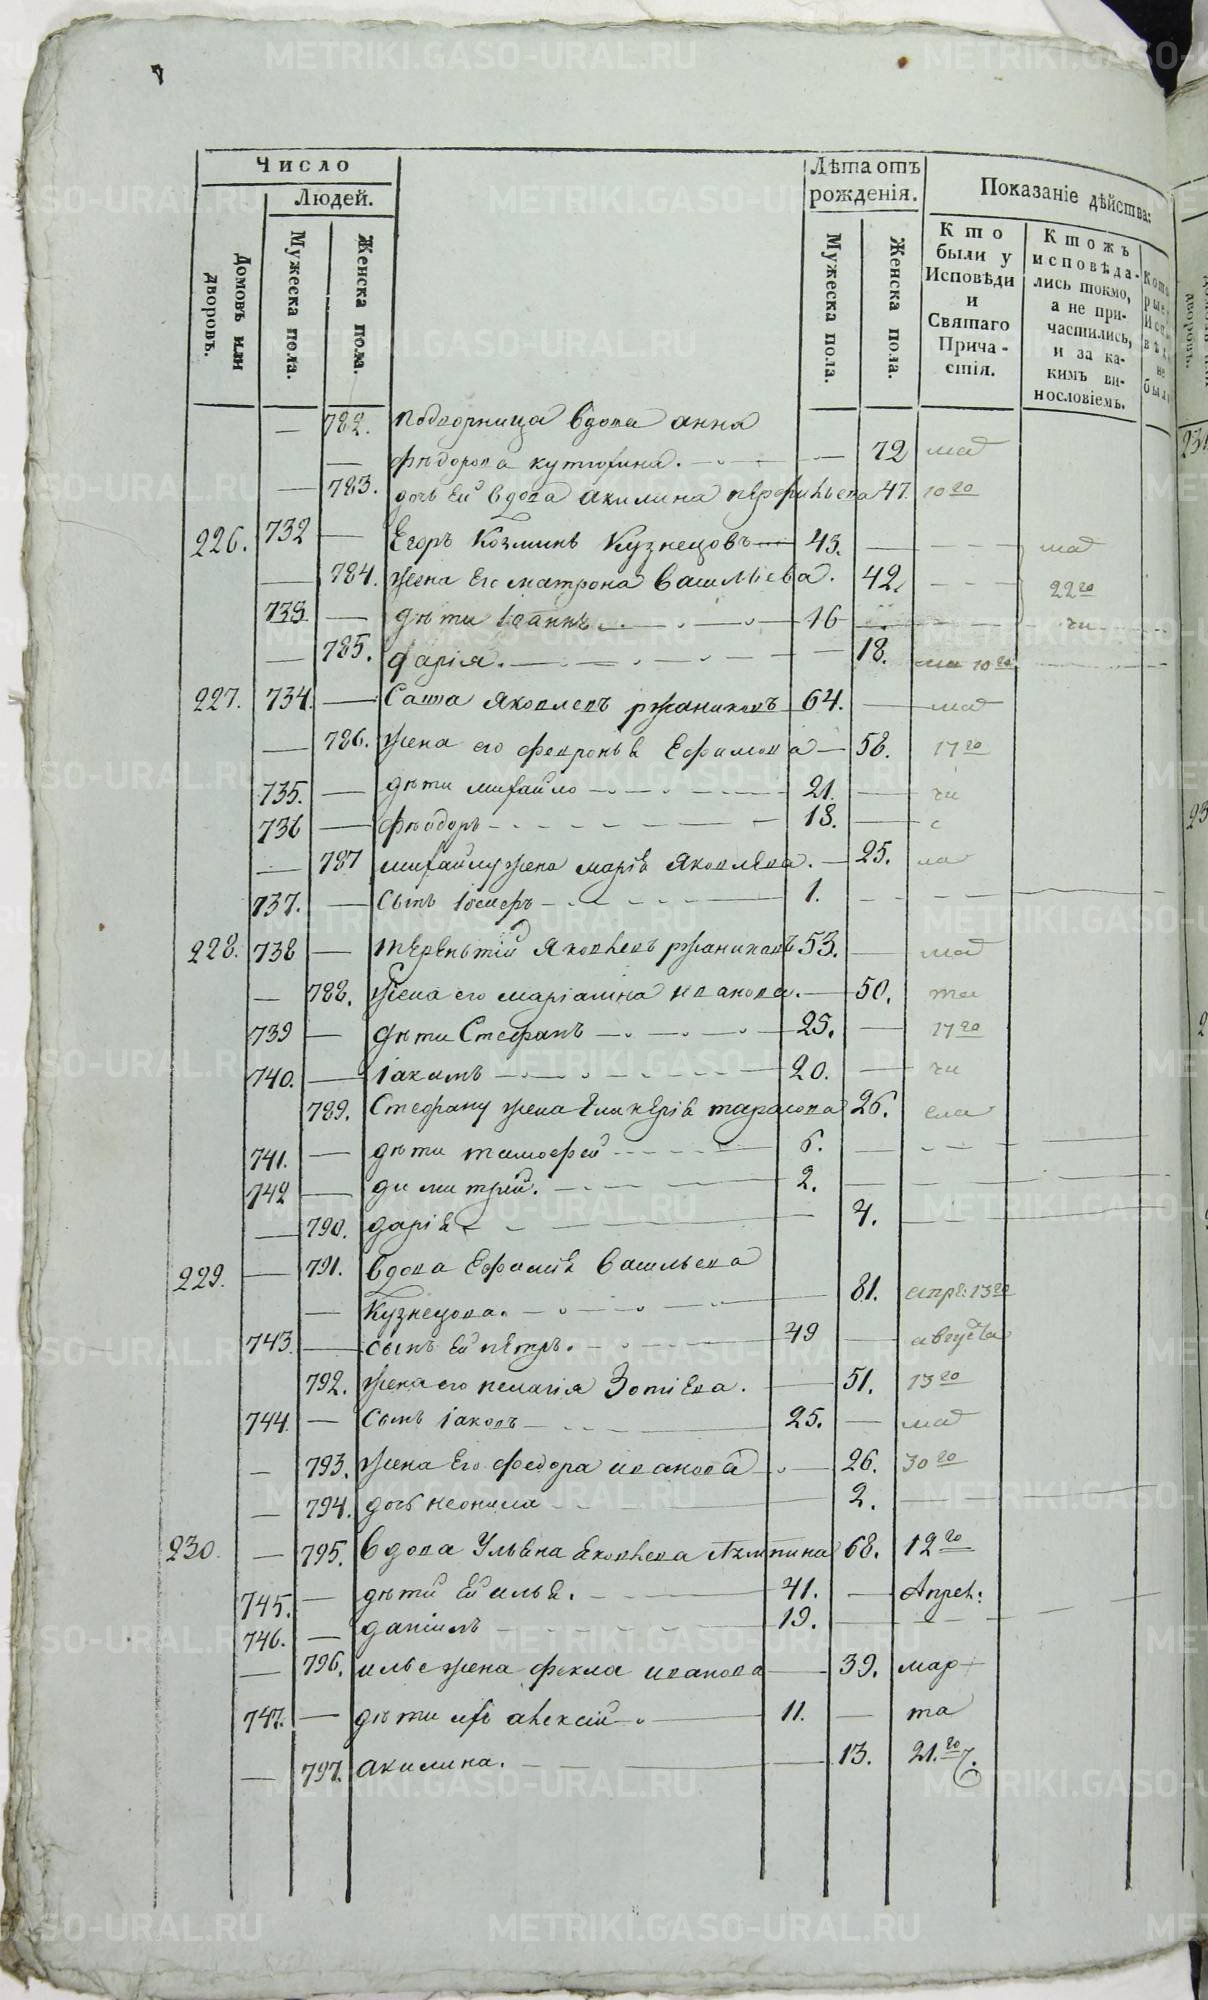 Число
Людей.
Домовъ или дворовъ.
Мужеска пола.
Женска пола.
Лѣта отъ рожденія.
Мужеска пола.
Женска пола.
Показаніе дѣйства:
Кто были у Исповѣди и Святаго Прича-стія.
Ктожъ исповѣда-лись токмо, а не при-частились, и за ка-кимъ ви-нословіемъ.
— 782. подворница вдова анна
— фѣдорова кутюхина. — 72 маѣ
— 783. дочь ей вдова акилина перфильева 47. 10го
226. 732 — Егоръ Козминъ Кузнецовъ — 43. — маѣ
— 784. жена его матрона васильева. 42. 22го
733. — дѣти Іоаннъ — 16 — чи
— 785. дарія. — 18. 10го
227. 734. — Савва Яковлевъ ржаниковъ 64. — маѣ
— 786. жена его февронья Ефимова — 58. 17го
735. — дѣти михайло — 21. — чи
736 — фѣодоръ — 18. — с
— 787 михайлу жена марія Яковлева. — 25. ла
737. — сынъ — 1.
228. 738 — терентій Яковлевъ ржаниковъ 53. — маѣ
— 788. жена его маріамна иванова. — 50.
739 — дѣти Стефанъ — 25. — 17го
740. — Іакимъ — 20. — чи
789. Стефану жена гликерія тарасова 26.
741. — дѣти тимофей — 6. —
742 — димитрий. — 2. —
— 790. дарія — 4. —
229. — 791. вдова Ефимія васильева
— Кузнецова. — 81. 13го
743. — сынъ ей петръ. — 49 — августа
792. жена его пелагія Зотіева. — 51. 13го
744. — сынъ Іаковъ — 25. — маѣ
— 793. жена его федора иванова — 26. 30го
— 794. дочь неонила — 2. —
230. — 795. вдова Ульяна Яковлева 68. 12го
745. — дѣти ей илья. — 41. — Апрел:
746. — даніилъ — 19. —
— 796. илье жена фекла иванова — 39. мар-
747. — дѣти ихъ алексій — 11. — та
— 797. акилина. — 13. 21.го
METRIKI.GASO-URAL.RU